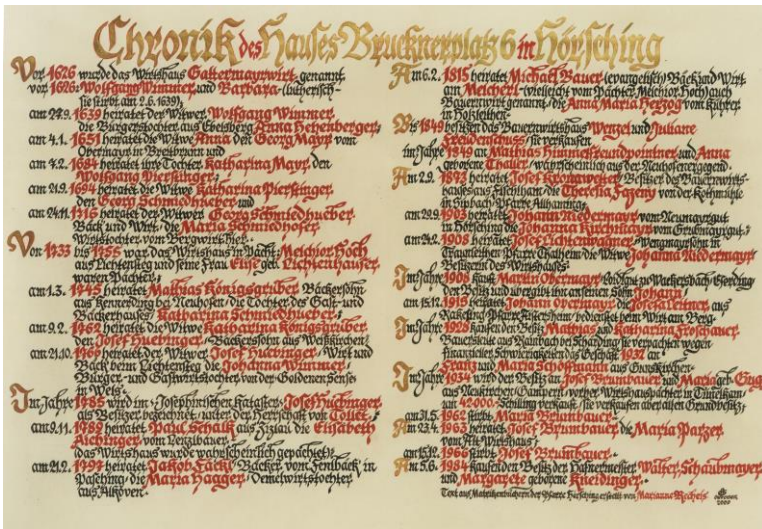 Chronik des Hauses Brucknerplatz 6 in Hörsching
Vor 1626 wurde das Wirtshaus Gattermayrwirt genannt
vor 1626: Wolfgang Wimmer und Barbara (lutherisch -
sie stirbt am 2.6.1639),
am 27.9. 1639 heiratet der Witwer Wolfgang Wimmer
die Bürgerstochter aus Ebelsberg Anna Hehenberger,
am 4.1. 1651 heiratet die Witwe Anna den Georg Mayr vom
Obermayr in Breitbrunn und
am 7.2. 1684 heiratet ihre Tochter Katharina Mayr den
Wolfgang Pierstinger,
am 21.9. 1694 heiratet die Witwe Katharina Pierstinger
den Georg Schmiedhueber und
am 24.11. 1716 heiratet der Witwer Georg Schmiedhueber
Bäck und Wirt, die Maria Schmiedhofer
Wirtstochter vom Bergwirt hier.
Von 1733 bis 1755 war das Wirtshaus in Pacht: Melchior Hoch
aus Lichtensteg und seine Frau Elise geb. Lichtenhauser
waren Pächter,
am 1.3. 1745 heiratet Mathias Königsgruber Bäckersohn
aus Kennerding bei Neuhofen, die Tochter des Gast- und
Bäckerhauses Katharina Schmiedhueber;
am 9.2. 1762 heiratet die Witwe Katharina Königsgruber
den Josef Huebinger, Bäckerssohn aus Weißkirchen,
am 21.10. 1766 heiratet der Witwer Josef Huebinger, Wirt und
Bäck beim Lichtensteg die Johanna Wimmer,
Bürger- und Gastwirtstochter von der Goldenen Sense
in Wels.
Im Jahre 1785 wird im Josephinischen Kataster Josef Huebinger
als Besitzer bezeichnet, unter der Herrschaft von Tollet,
am 9.11. 1789 heiratet Paul Schaik aus Zizlau die Elisabeth
Aichinger vom Penzlbauer,
(das Wirtshaus wurde wahrscheinlich gepachtet),
am 21.2. 1797 heiratet Jakob Fackl Bäcker vom Fenlback in
Pasching, die Maria Hagger, Demelwirtstochter
aus Alkoven.
Am 6.2. 1815 heiratet Michael Bauer (evangelisch) Bäck und Wirt
am Meicherl (vielleicht vom Pächter Melchior Hoch) auch
Bauernwirt genannt, die Anna Maria Herzog vom Kührer
in Holzleithen.
Bis 1849 besitzen das Bauernwirtshaus Wenzel und Juliane
Freudenschuss, sie verkaufen
im Jahre 1849 an Mathias Himmelfreundpointner und Anna
geborene Thaller, wahrscheinlich aus der Neuhofenergegend.
Am 2.9. 1873 heiratet Josef Kronawetter Besitzer des Bauernwirts-
hauses aus Fischlham, die Theresia Fageny von der Rothmühle
in Sipbach-Pfarre Allhaming,
am 29.9. 1903 heiratet Johann Niedermayr vom Neumayrgut
in Hörsching die Johanna Kirchmayr vom Grubmayrgut,
am 24.2. 1908 heiratet Josef Lichtenwagner, Wengmayrsohn in
Traunleithen Pfarre Thalheim die Witwe Johanna Niedermayr
Besitzerin des Wirtshauses.
Im Jahre 1908 kauft Martin Obermayr Söldgut zu Wackersbach-Eferding
den Besitz und übergibt ihn an seinen Sohn Johann,
am 15.11. 1915 heiratet Johann Obermayr die Josefa Leitner aus
Rakesing-Pfarre Attersheim, bedienstet beim Wirt am Berg.
Im Jahre 1928 kaufen den Besitz Mathias und Katharina Froschauer
Bäckersleute aus Rainbach bei Schärding, sie verpachten wegen
finanzieller Schwierigkeiten das Geschäft 1932 an
Franz und Maria Schöffmann aus Gunskirchen.
Im Jahre 1934 wird der Besitz an Josef Brumbauer und Maria geb. Gugg
aus Neukirchen-Gamwern, vorher Wirtshauspächter in Timelkam,
um 42000.- Schilling verkauft, sie verkaufen aber allen Grundbesitz,
am 31.5. 1962 stirbt Maria Brumbauer.
Am 23.4. 1963 heiratet Josef Brumbauer die Maria Parzer
vom Alt Wirtshaus,
am 15.12. 1966 stirbt Josef Brumbauer.
Am 5.6. 1984 kaufen den Besitz der Hafnermeister Walter Schaubmayer
und Margarete geborene Kneidinger.
Text aus Matrikenbüchern der Pfarre Hörsching erstellt von Marianne Rechels
2000